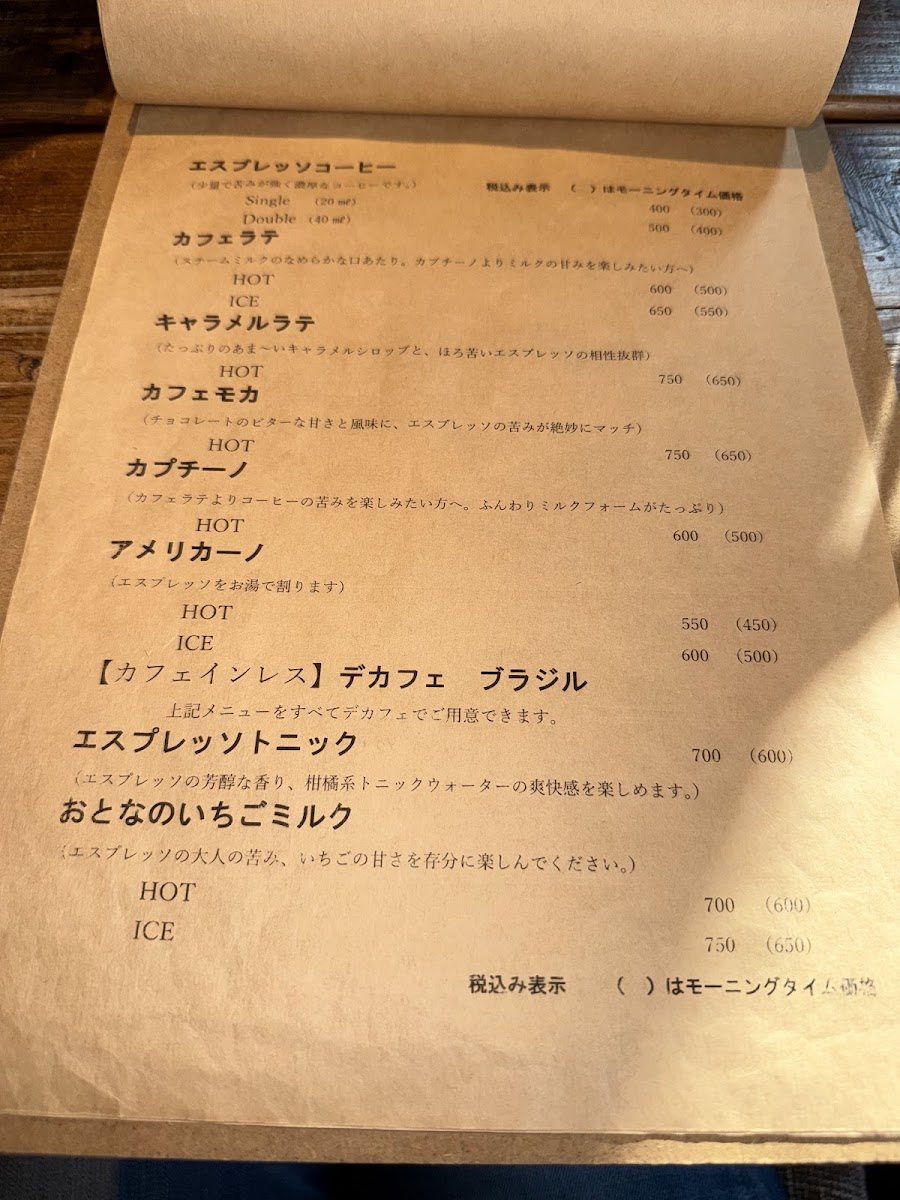 エスプレッソコーヒー
(少量で苦みが強く濃厚なコーヒーです。) 税込み表示 ( )はモーニングタイム価格
Single (20㎖) 400 (300)
Double (40㎖) 500 (400)
カフェラテ
(スチームミルクのなめらかな口あたり。カプチーノよりミルクの甘みを楽しみたい方へ)
HOT 600 (500)
ICE 650 (550)
キャラメルラテ
(たっぷりのあま〜いキャラメルシロップと、ほろ苦いエスプレッソの相性抜群)
HOT 750 (650)
カフェモカ
(チョコレートのビターな甘さと風味に、エスプレッソの苦みが絶妙にマッチ)
HOT 750 (650)
カプチーノ
(カフェラテよりコーヒーの苦みを楽しみたい方へ。ふんわりミルクフォームがたっぷり)
HOT 600 (500)
アメリカーノ
(エスプレッソをお湯で割ります)
HOT 550 (450)
ICE 600 (500)
【カフェインレス】デカフェ ブラジル
上記メニューをすべてデカフェでご用意できます。
エスプレッソトニック 700 (600)
(エスプレッソの芳醇な香り、柑橘系トニックウォーターの爽快感を楽しめます。)
おとなのいちごミルク
(エスプレッソの大人の苦み、いちごの甘さを存分に楽しんでください。)
HOT 700 (600)
ICE 750 (650)
税込み表示 ( )はモーニングタイム価格